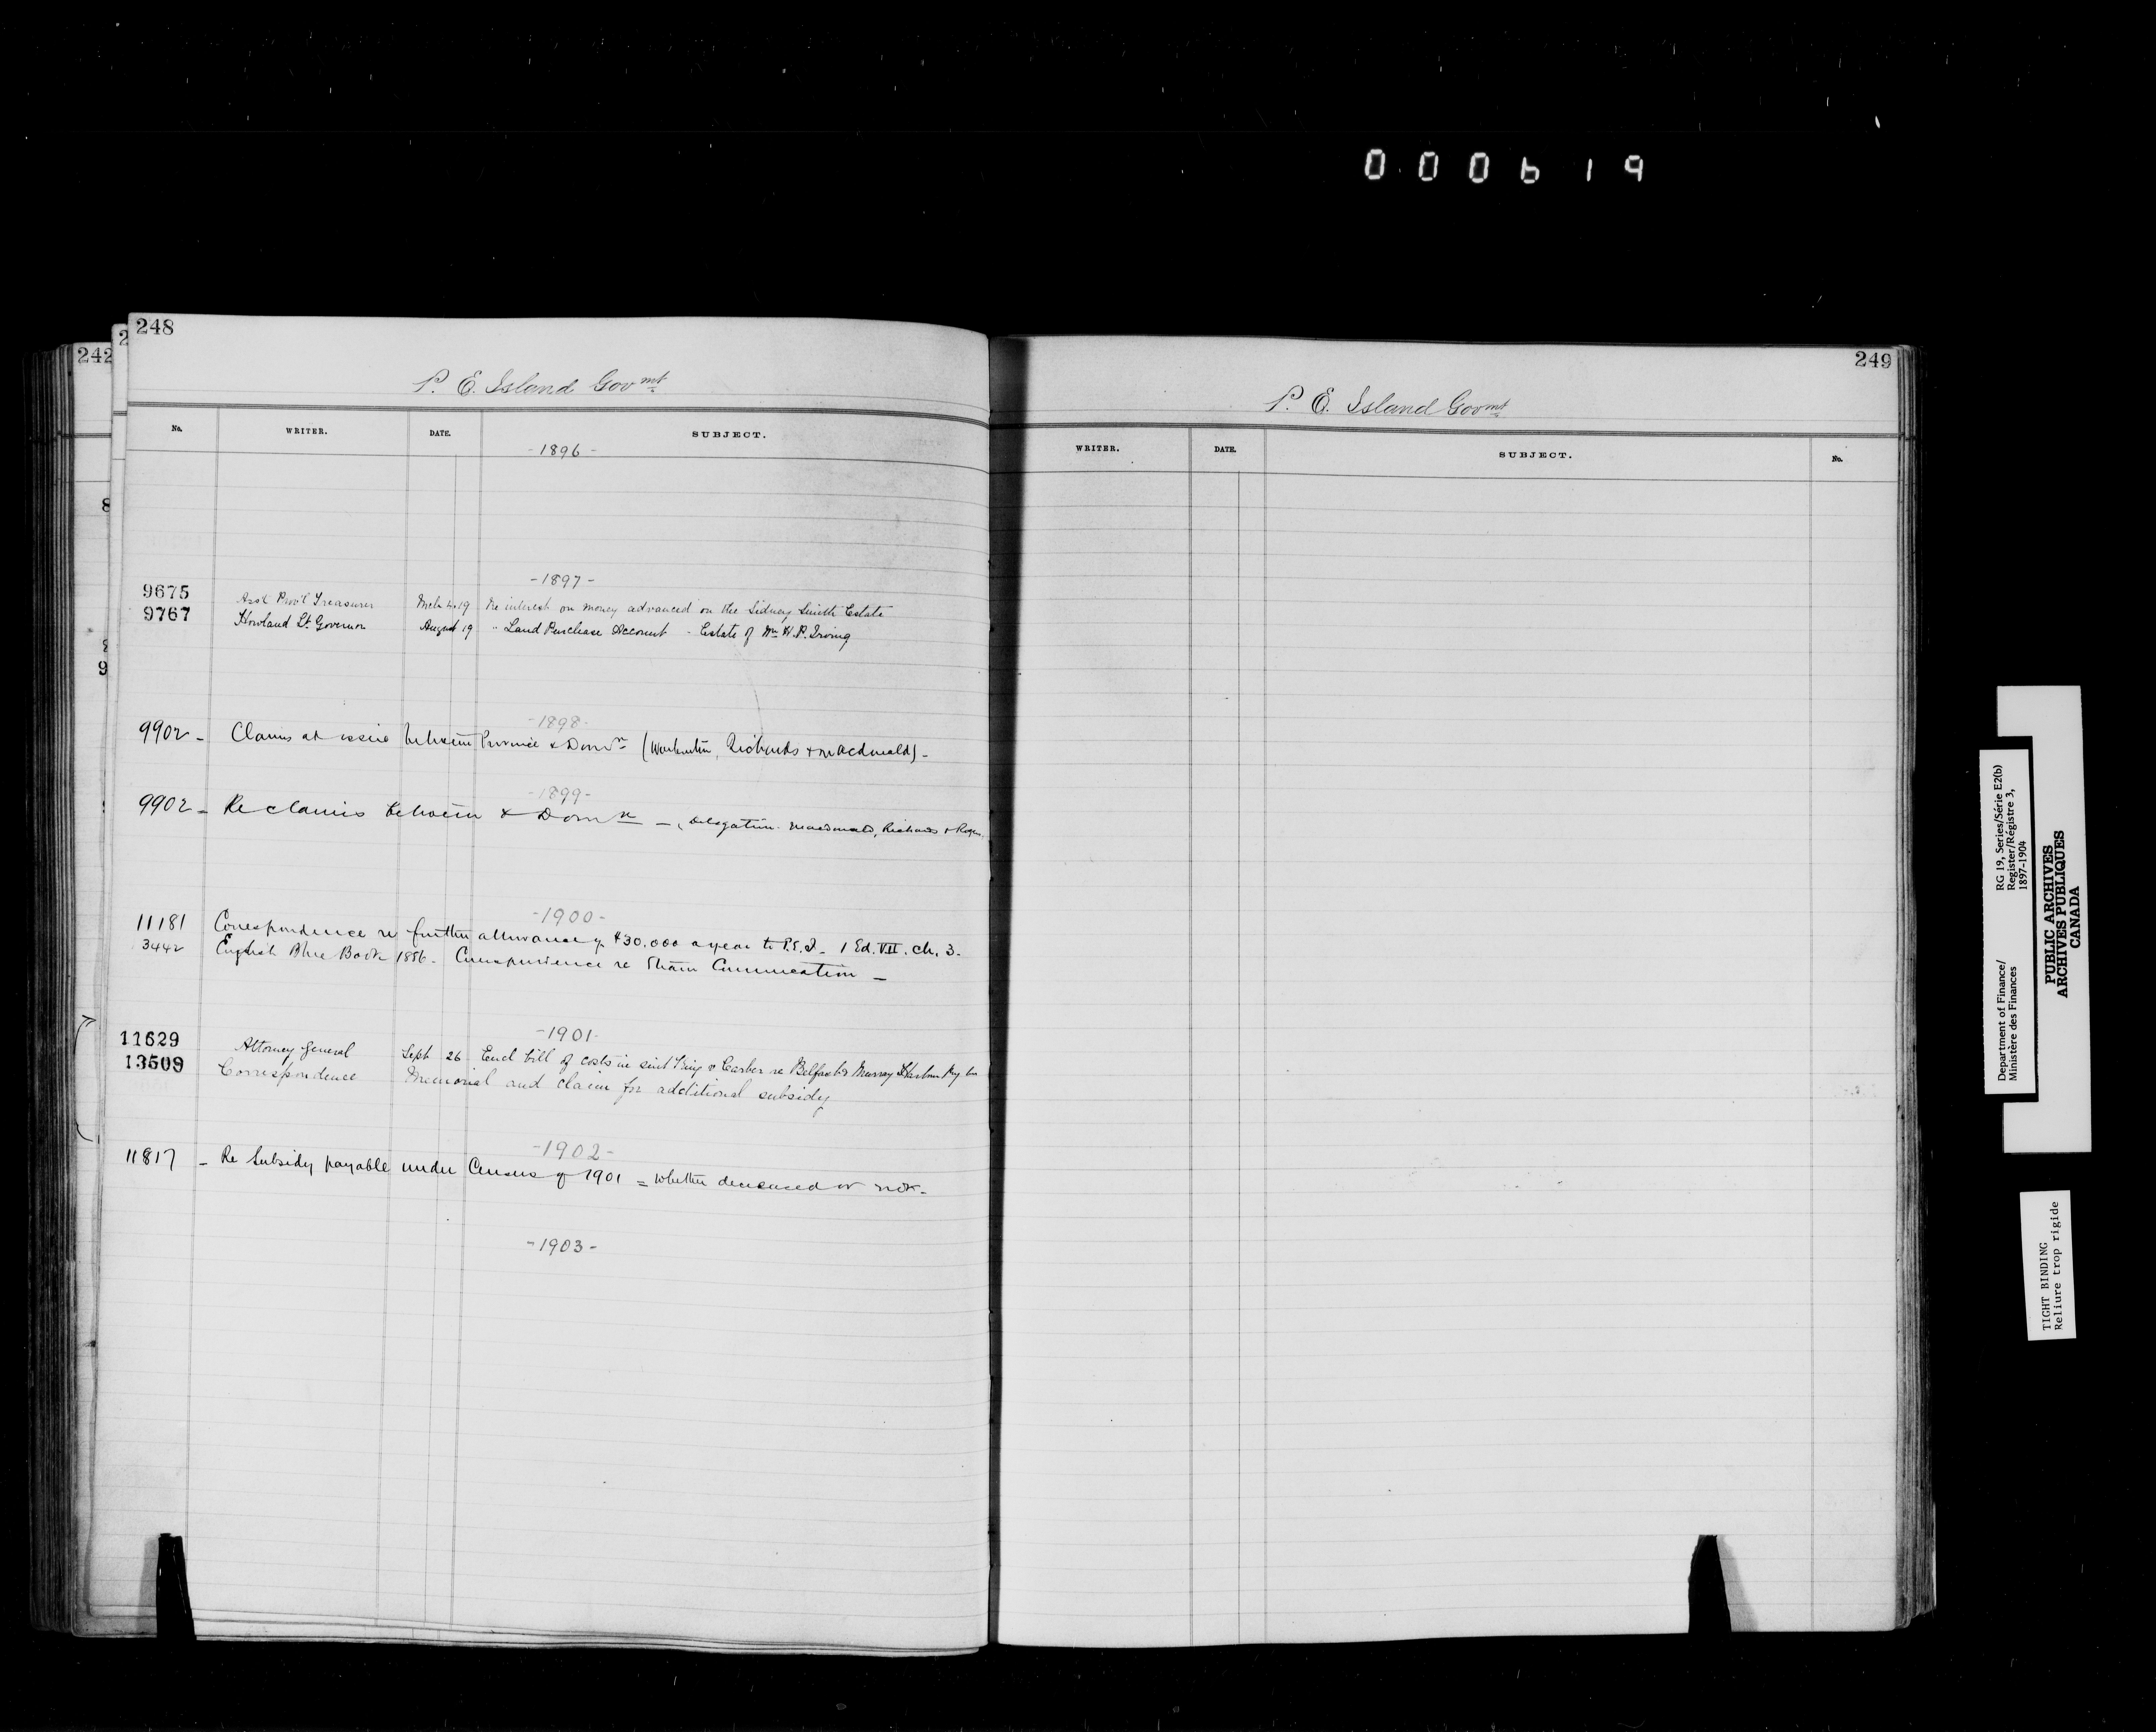 000619
248
242
P. E. Island Govmt
No. WRITER. DATE. SUBJECT.
-1896-
-1897-
9675 Ass't Prov'l Treasurer Mch 19 Re interest on money advanced on the Sidney Smith Estate
9767 Howland Lt. Governor August 19 " Land Purchase Account - Estate of H. P. Irving
-1898-
9902 - Claims at issue between Province & Domn (Richards & Macdonald) -
-1899-
9902 - Re claims between & Domn - Delegation. Macdonald, Richards &
-1900-
11181 Correspondence re further allowance of $30,000 a year to P.E.I. - 1 Ed. VII. Ch. 3.
3442 English Blue Book 1886 - Correspondence re Steam Communication -
-1901-
11629 Attorney General Sept 26 Encl bill of costs in suit King v re Belfast & Murray Harbour Ry
13509 Correspondence Memorial and claim for additional subsidy
-1902-
11817 - Re Subsidy payable under Census of 1901 = whether decreased or not -
-1903-
249
P. E. Island Govmt
WRITER. DATE. SUBJECT. No.
Department of Finance/
Ministère des Finances
RG 19, Series/Série E2(b)
Register/Régistre 3,
1897-1904
PUBLIC ARCHIVES
ARCHIVES PUBLIQUES
CANADA
TIGHT BINDING
Reliure trop rigide